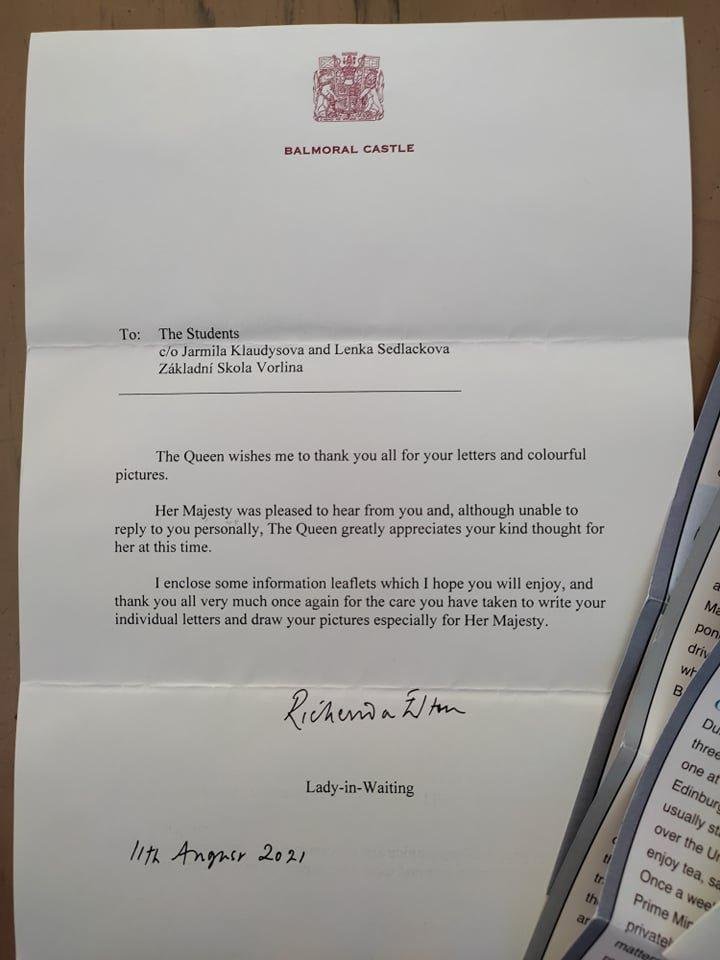 BALMORAL CASTLE
To: The Students
c/o Jarmila Klaudysova and Lenka Sedlackova
Základní Skola Vorlina
The Queen wishes me to thank you all for your letters and colourful
pictures.
Her Majesty was pleased to hear from you and, although unable to
reply to you personally, The Queen greatly appreciates your kind thought for
her at this time.
I enclose some information leaflets which I hope you will enjoy, and
thank you all very much once again for the care you have taken to write your
individual letters and draw your pictures especially for Her Majesty.
Richenda Elton
Lady-in-Waiting
11th August 2021
three
one at
Edinburg
usually st
over the Un
enjoy tea, sa
Once a wee
Prime Min
privatel
matte